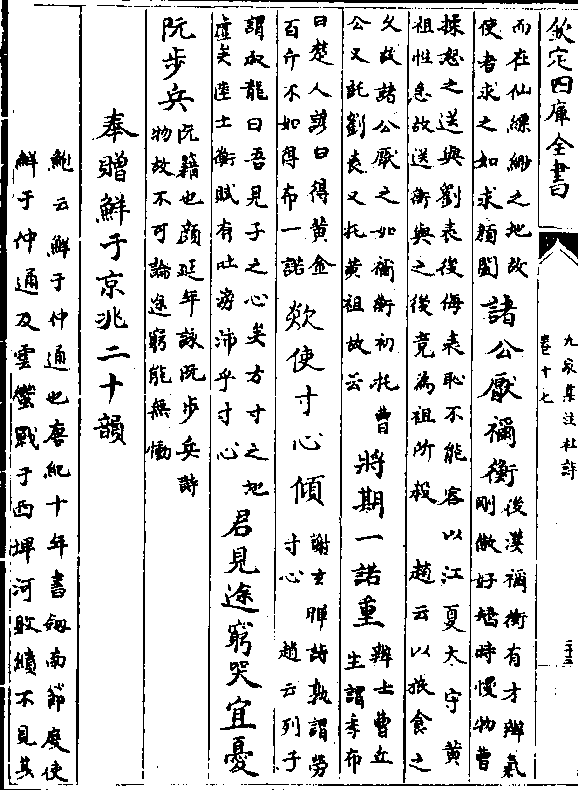 欽定四庫全書
九家集注杜詩
卷十七
而在仙縹緲之地故
使者求之如求顔闔
諸公厭禰衡
後漢禰衡有才辯氣
剛傲好矯時慢物曹
操怒之送與劉表後侮表恥不能容以江夏太守黄
祖性急故送衡與之後竟為祖所殺 趙云以旅食之
久故諸公厭之如禰衡初托曹
公又託劉表又托黄祖故云
將期一諾重
辯士曹丘
生謂季布
曰楚人諺曰得黄金
百斤不如得布一諾
欻使寸心傾
謝玄暉詩孰謂勞
寸心 趙云列子
謂叔龍曰吾見子之心矣方寸之地
虚矣陸士衡賦有吐滂沛乎寸心
君見途窮哭宜憂
阮步兵
阮籍也顔延年詠阮步兵詩
物故不可論途窮能無慟
奉贈鮮于京兆二十韻
鮑云鮮于仲通也唐紀十年書劒南節度使
鮮于仲通及雲蠻戰于西洱河敗績不見其